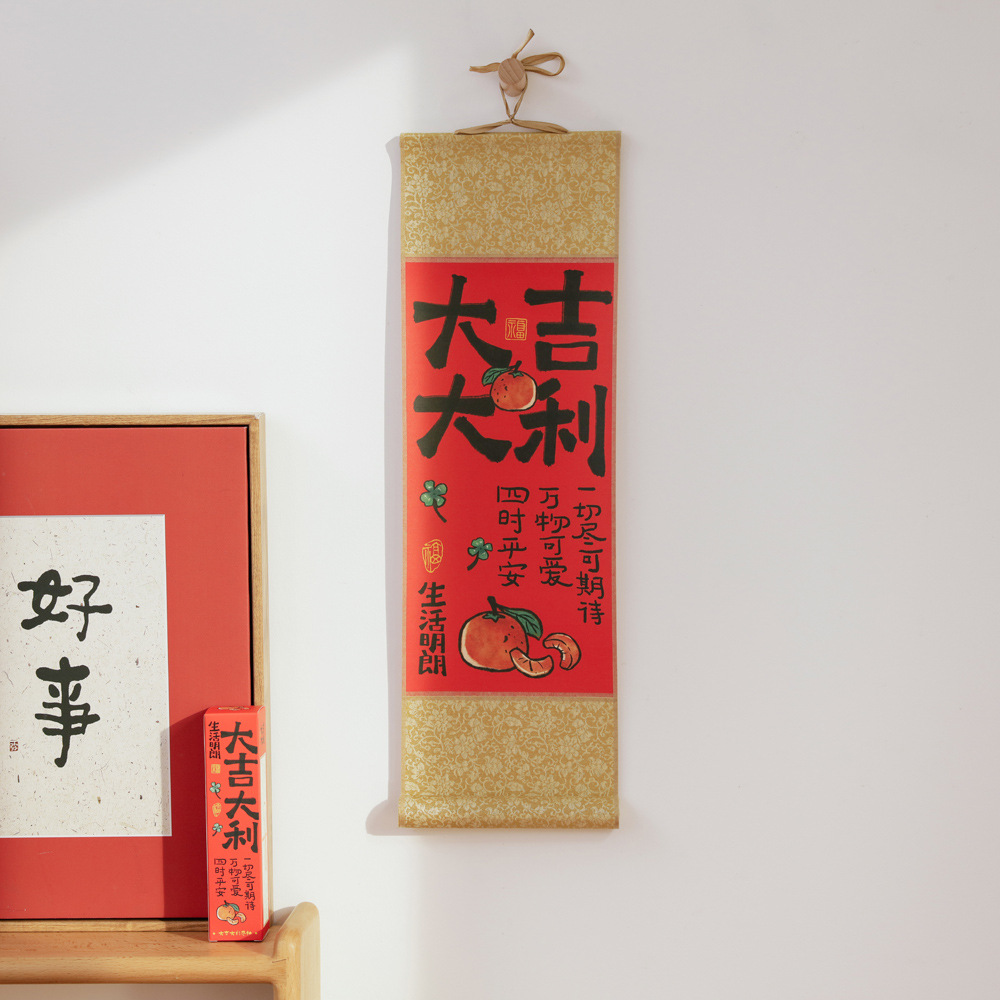 大吉
大利
福
一切尽可期待
万物可爱
四时平安
福
生活明朗
好事
大吉大利
生活明朗
一切尽可期待
万物可爱
四时平安